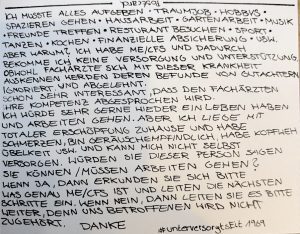 ICH MUSSTE ALLES AUFGEBEN • TRAUMJOB • HOBBYS •
SPAZIEREN GEHEN • HAUSARBEIT • GARTENARBEIT • MUSIK
• FREUNDE TREFFEN • RESTURANT BESUCHEN • SPORT •
TANZEN • KOCHEN • FINANZIELLE ABSICHERUNG • USW.
ABER WARUM? ICH HABE ME/CFS UND DADURCH
BEKOMME ICH KEINE VERSORGUNG UND UNTERSTÜTZUNG.
OBWOHL FACHÄRZTE SICH MIT DIESER KRANKHEIT
AUSKENNEN WERDEN DEREN BEFUNDE VON GUTACHTERN
IGNORIERT UND ABGELEHNT.
SCHON SEHR INTERESSANT, DASS DEN FACHÄRZTEN
IHRE KOMPETENZ ABGESPROCHEN WIRD.
ICH WÜRDE SEHR GERNE WIEDER EIN LEBEN HABEN
UND ARBEITEN GEHEN. ABER ICH LIEGE MIT
TOTALER ERSCHÖPFUNG ZUHAUSE UND HABE
SCHMERZEN, BIN GERÄUSCHEMPFINDLICH, HABE KOPFWEH
ÜBELKEIT USW. UND KANN MICH NICHT SELBST
VERSORGEN. WÜRDEN SIE DIESER PERSON SAGEN
SIE KÖNNEN/MÜSSEN ARBEITEN GEHEN?
WENN JA, DANN ERKUNDEN SIE SICH BITTE
WAS GENAU ME/CFS IST UND LEITEN DIE NÄCHSTEN
SCHRITTE EIN. WENN NEIN, DANN LEITEN SIE ES BITTE
WEITER, DENN UNS BETROFFENEN WIRD NICHT
ZUGEHÖRT. DANKE
#unterversorgtseit 1969